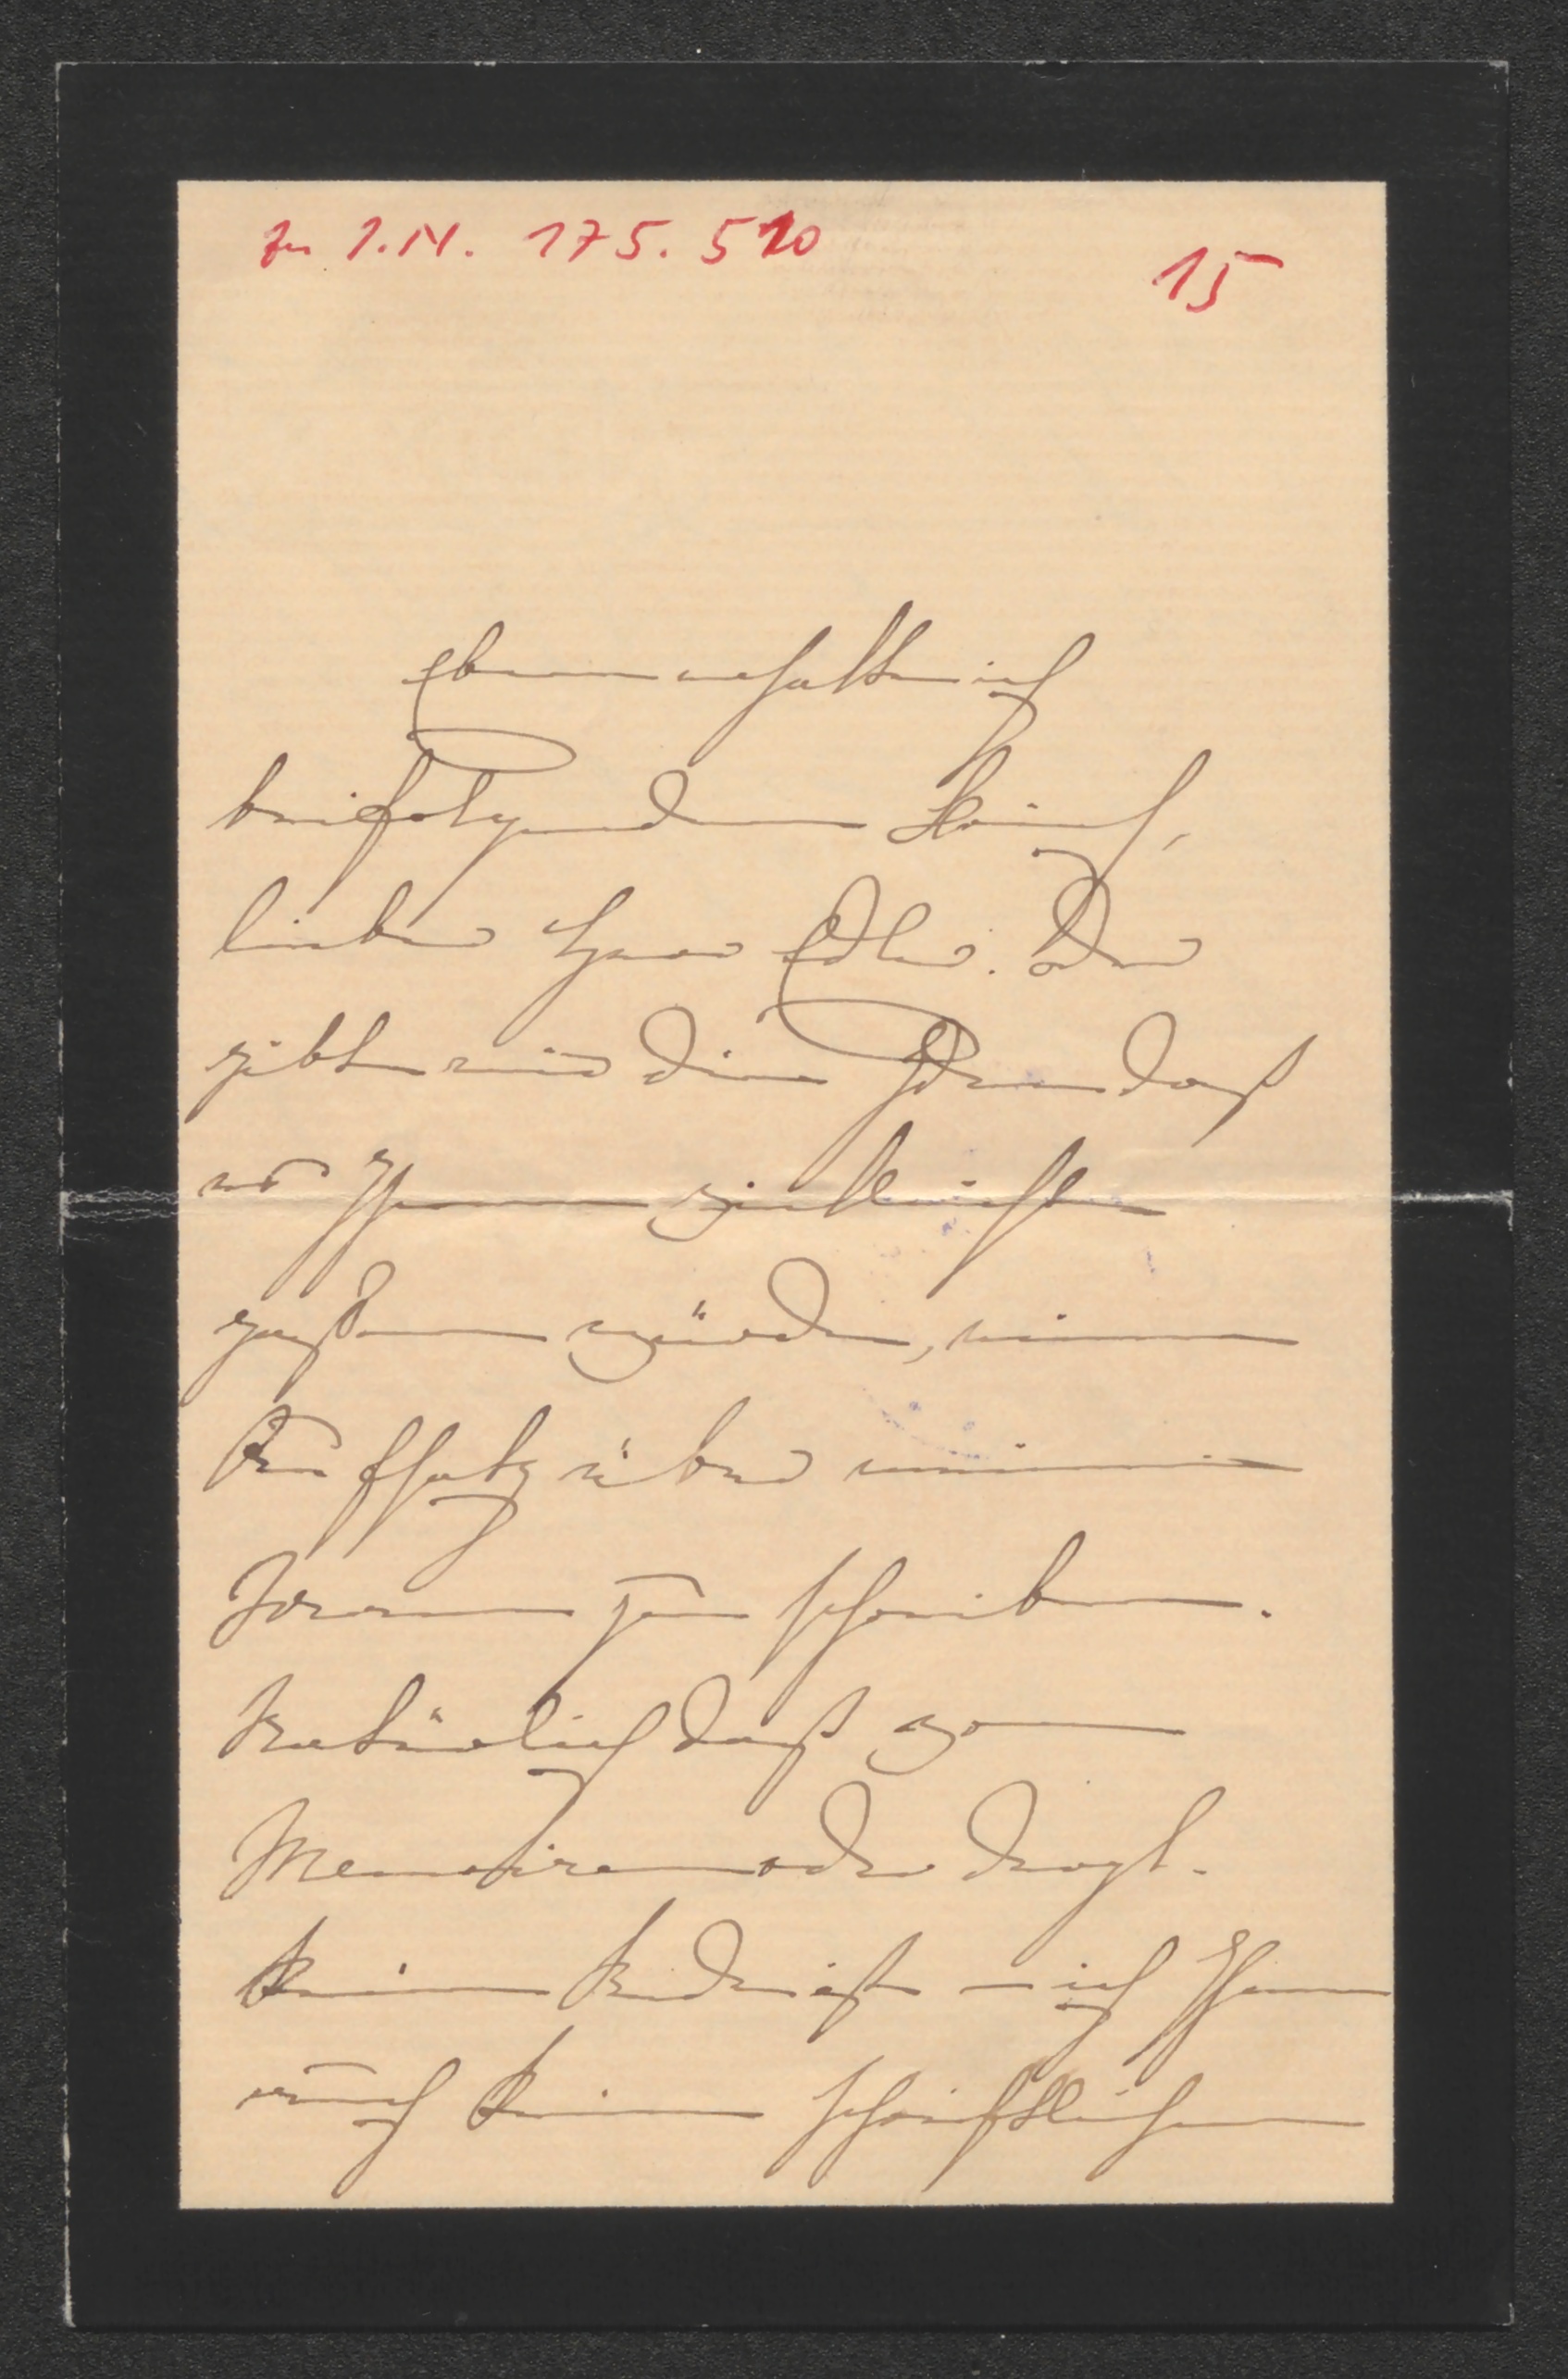 Zu I.N. 175.510
15
Eben erhalte ich
beifolgenden Brief,
lieber Herr Edler. Der
gibt mir die Idee daß
es Ihnen vielleicht
passen würde, einen
Aufsatz über meinen
zu schreiben.
Natürlich daß von
Memoiren oder drgl.
keine Rede ist – ich Ihnen
auch keine schriftlichen